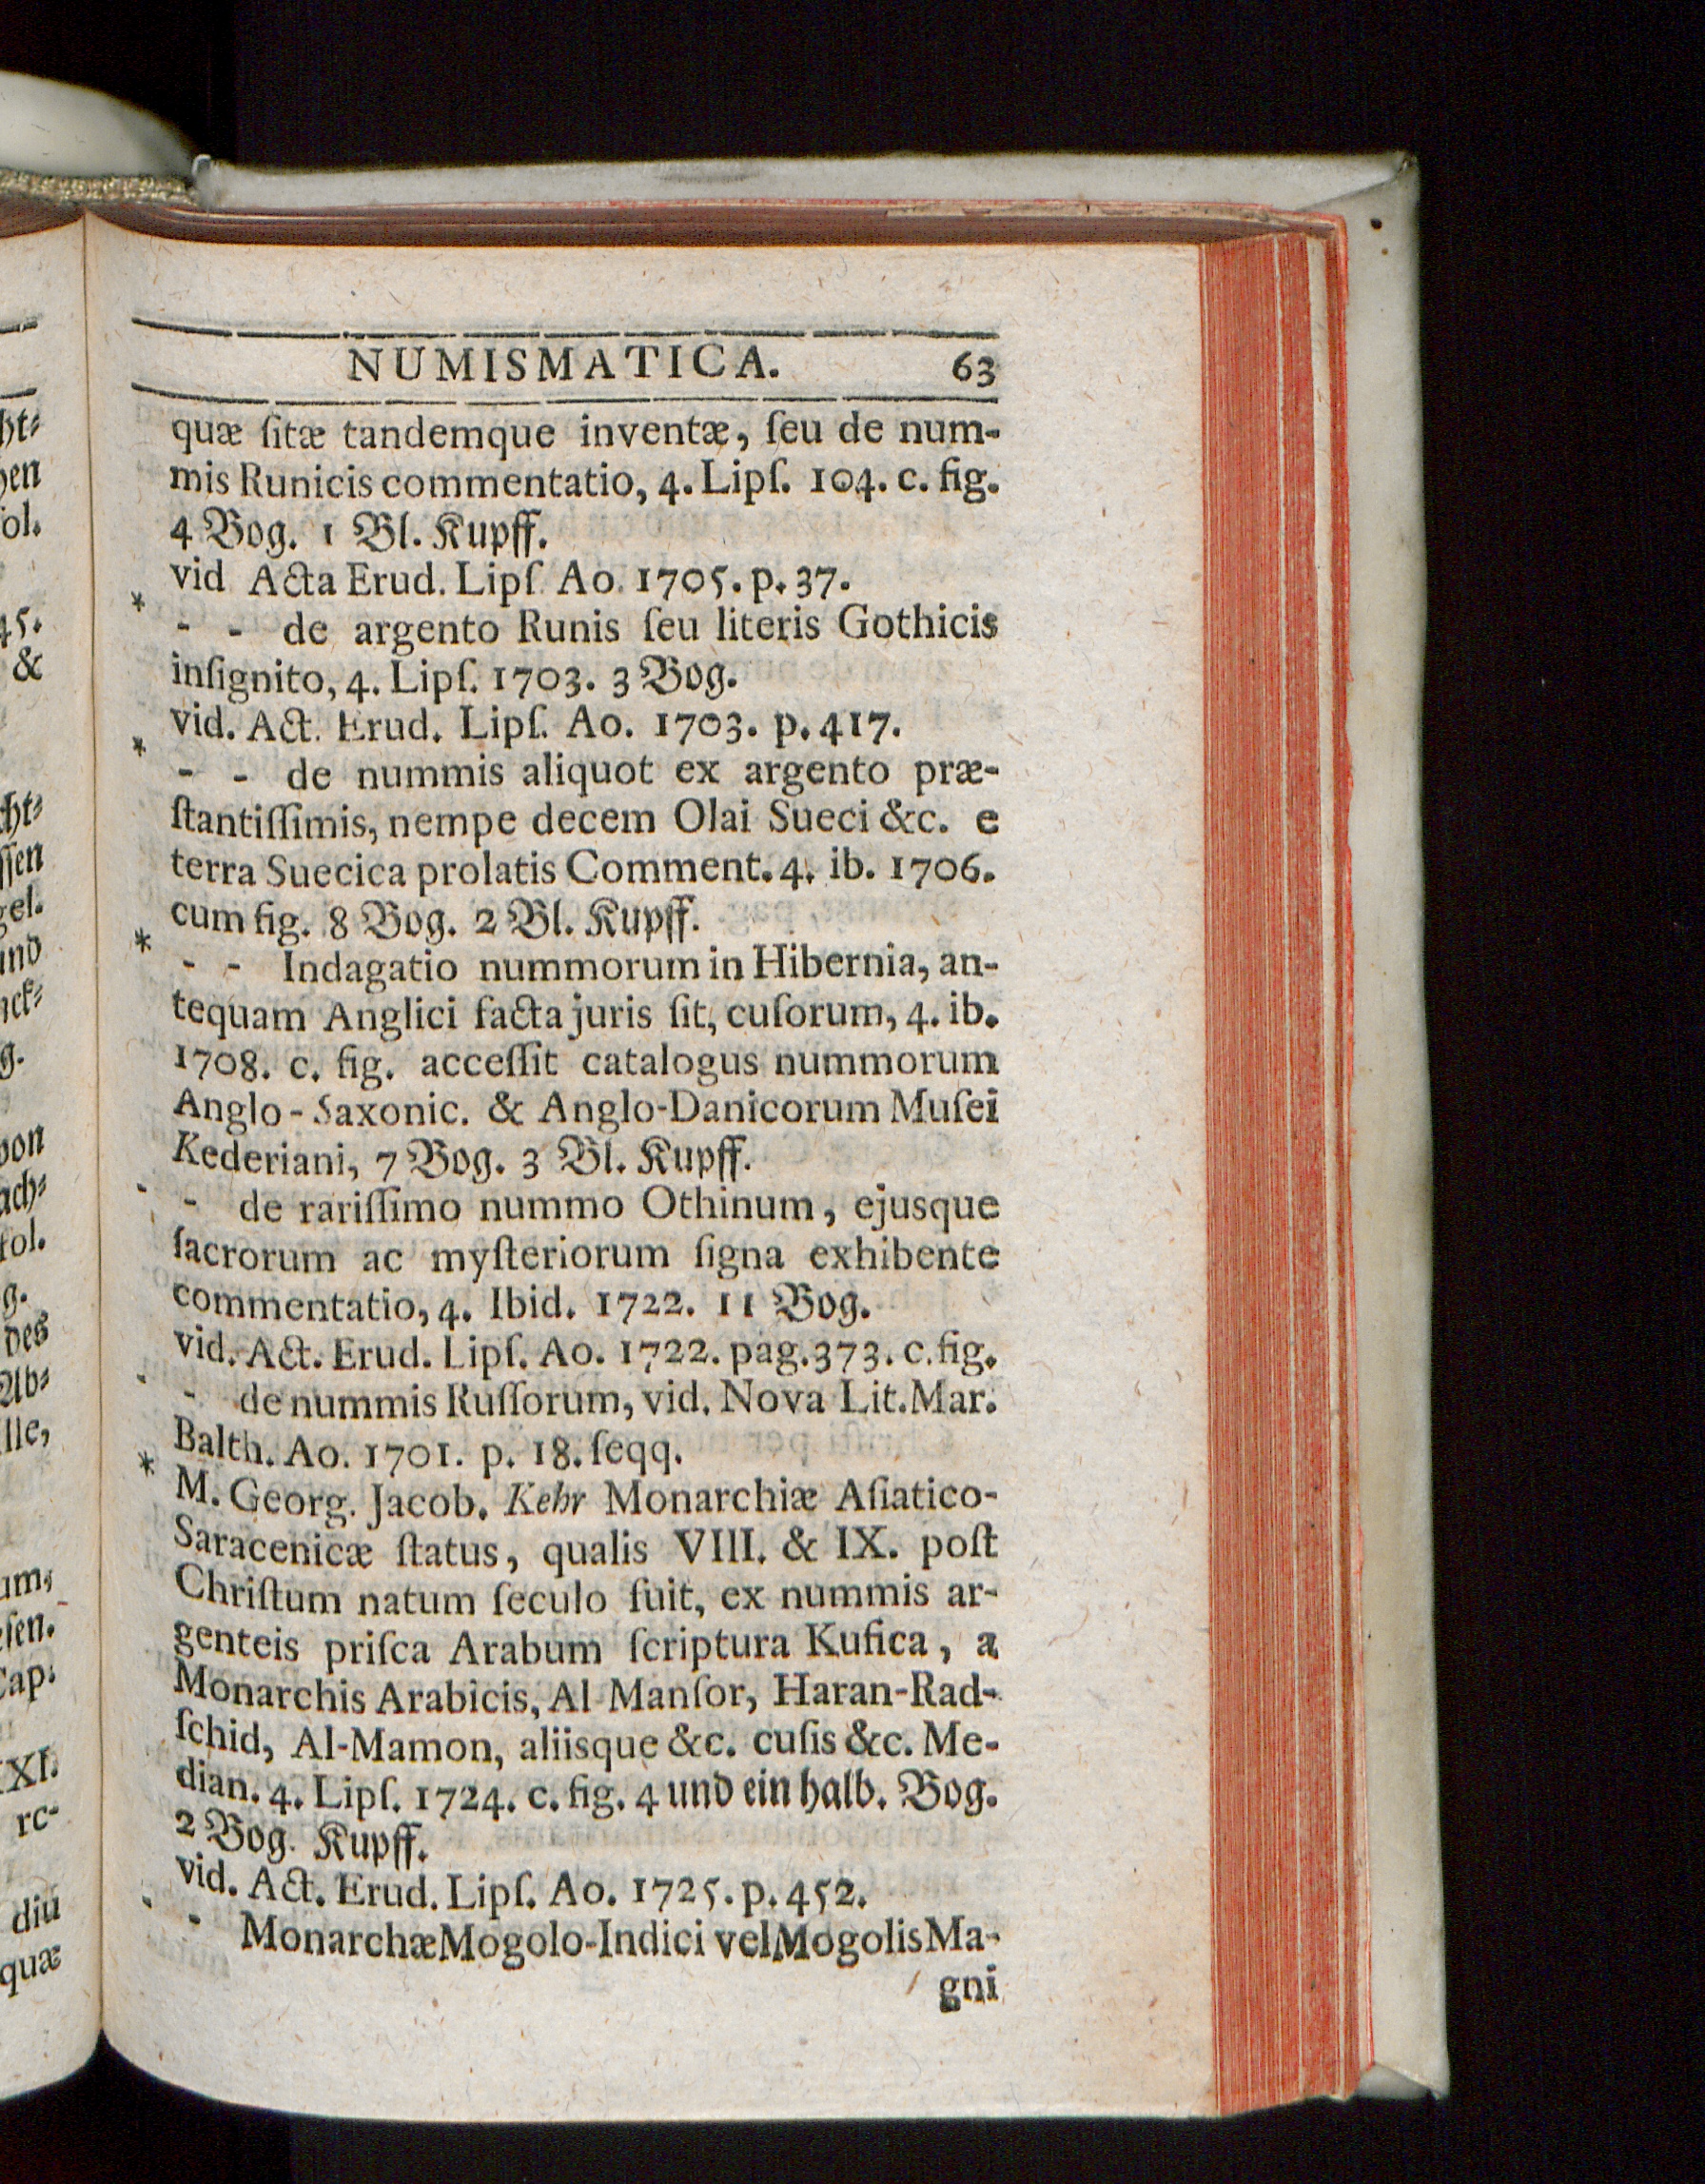 NUMISMATICA. 63
quæ ſitæ tandemque inventæ, ſeu de num-
mis Runicis commentatio, 4. Lipſ. 104. c. fig.
4 Bog. 1 Bl. Kupff.
vid Acta Erud. Lipſ Ao. 1705. p. 37.
* - - de argento Runis ſeu literis Gothicis
inſignito, 4. Lipſ. 1703. 3 Bog.
vid. Act. Erud. Lipſ. Ao. 1703. p. 417.
* - - de nummis aliquot ex argento præ-
ſtantiſſimis, nempe decem Olai Sueci &c. e
terra Suecica prolatis Comment. 4. ib. 1706.
cum fig. 8 Bog. 2 Bl. Kupff.
* - - Indagatio nummorum in Hibernia, an-
tequam Anglici facta juris ſit, cuſorum, 4. ib.
1708. c. fig. acceſſit catalogus nummorum
Anglo-Saxonic. & Anglo-Danicorum Muſei
Kederiani, 7 Bog. 3 Bl. Kupff.
- - de rariſſimo nummo Othinum, ejusque
ſacrorum ac myſteriorum ſigna exhibente
commentatio, 4. Ibid. 1722. 11 Bog.
vid. Act. Erud. Lipſ. Ao. 1722. pag. 373. c. fig.
- - de nummis Ruſſorum, vid. Nova Lit. Mar.
Balth. Ao. 1701. p. 18. ſeqq.
* M. Georg. Jacob. Kehr Monarchiæ Aſiatico-
Saracenicæ ſtatus, qualis VIII. & IX. poſt
Chriſtum natum ſeculo fuit, ex nummis ar-
genteis priſca Arabum ſcriptura Kufica, a
Monarchis Arabicis, Al Manſor, Haran-Rad-
ſchid, Al-Mamon, aliisque &c. cuſis &c. Me-
dian. 4. Lipſ. 1724. c. fig. 4 und ein halb. Bog.
2 Bog. Kupff.
vid. Act. Erud. Lipſ. Ao. 1725. p. 452.
- - Monarchæ Mogolo-Indici vel Mogolis Ma-
gni